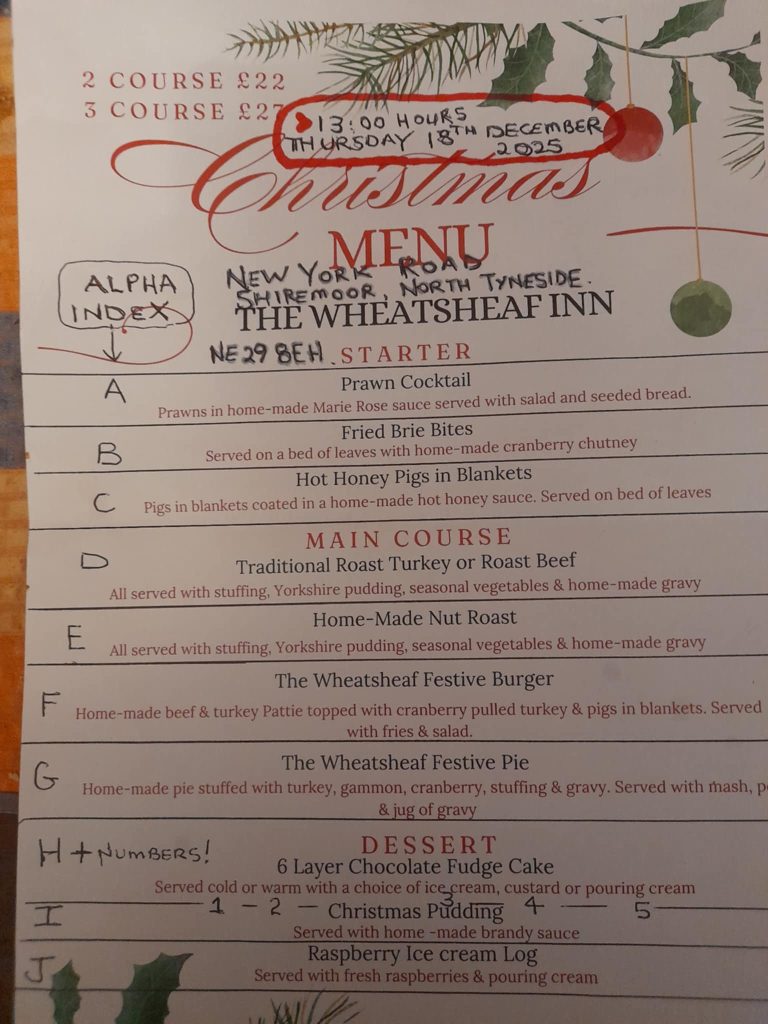 2 COURSE £22
3 COURSE £27
13:00 HOURS
THURSDAY 18TH DECEMBER
2025
Christmas
MENU
ALPHA
INDEX
NEW YORK ROAD
SHIREMOOR, NORTH TYNESIDE.
THE WHEATSHEAF INN
NE29 8EH.
STARTER
A
Prawn Cocktail
Prawns in home-made Marie Rose sauce served with salad and seeded bread.
B
Fried Brie Bites
Served on a bed of leaves with home-made cranberry chutney
C
Hot Honey Pigs in Blankets
Pigs in blankets coated in a home-made hot honey sauce. Served on bed of leaves
MAIN COURSE
D
Traditional Roast Turkey or Roast Beef
All served with stuffing, Yorkshire pudding, seasonal vegetables & home-made gravy
E
Home-Made Nut Roast
All served with stuffing, Yorkshire pudding, seasonal vegetables & home-made gravy
F
The Wheatsheaf Festive Burger
Home-made beef & turkey Pattie topped with cranberry pulled turkey & pigs in blankets. Served
with fries & salad.
G
The Wheatsheaf Festive Pie
Home-made pie stuffed with turkey, gammon, cranberry, stuffing & gravy. Served with mash,
& jug of gravy
DESSERT
H + NUMBERS!
6 Layer Chocolate Fudge Cake
Served cold or warm with a choice of ice cream, custard or pouring cream
1 - 2 - 3 - 4 - 5
I
Christmas Pudding
Served with home -made brandy sauce
J
Raspberry Ice cream Log
Served with fresh raspberries & pouring cream